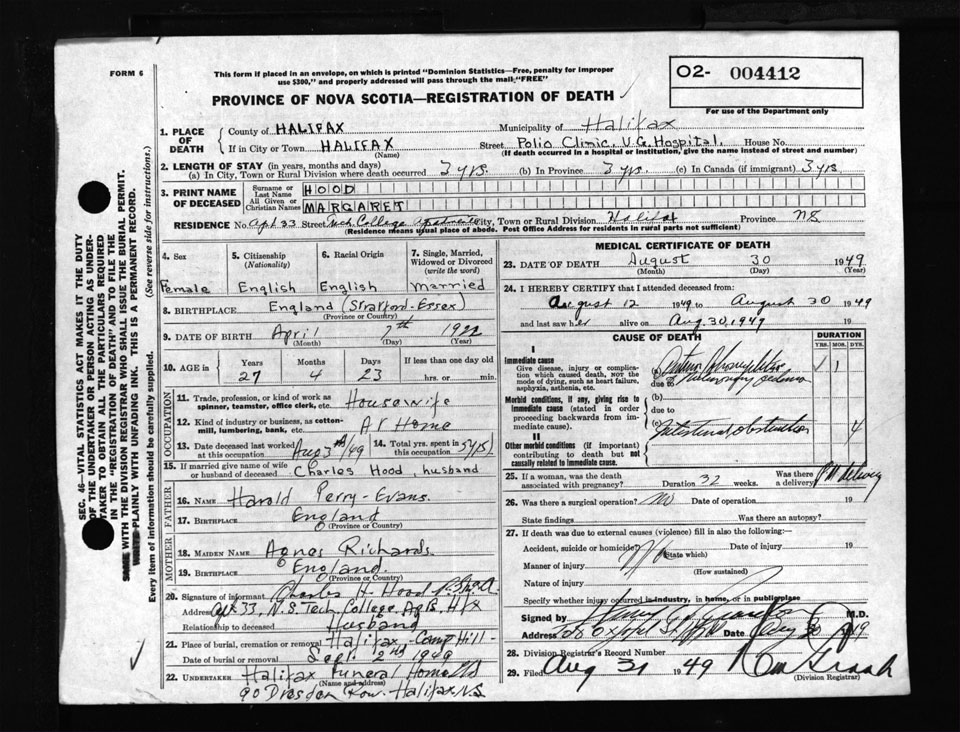 FORM 6
This form if placed in an envelope, on which is printed "Dominion Statistics—Free, penalty for improper
use $300," and properly addressed will pass through the mail "FREE"
PROVINCE OF NOVA SCOTIA—REGISTRATION OF DEATH
02- 004412
For use of the Department only
SEC. 46—VITAL STATISTICS ACT MAKES IT THE DUTY
OF THE UNDERTAKER OR PERSON ACTING AS UNDER-
TAKER TO OBTAIN ALL THE PARTICULARS REQUIRED
IN THE "REGISTRATION OF DEATH" AND TO FILE THE
SAME WITH THE DIVISION REGISTRAR WHO SHALL ISSUE THE BURIAL PERMIT.
WRITE PLAINLY WITH UNFADING INK. THIS IS A PERMANENT RECORD.
Every item of information should be carefully supplied. (See reverse side for instructions.)
1. PLACE OF DEATH County of HALIFAX Municipality of Halifax
If in City or Town HALIFAX (Name) Street Polio Clinic, V.G. Hospital, House No.
(If death occurred in a hospital or institution, give the name instead of street and number)
2. LENGTH OF STAY (in years, months and days)
(a) In City, Town or Rural Division where death occurred 3 yrs. (b) In Province 3 yrs. (c) In Canada (if immigrant) 3 yrs.
3. PRINT NAME OF DECEASED Surname or Last Name HOOD
All Given or Christian Names MARGARET
RESIDENCE No. Apt 33 Street Tech. College Apartments City, Town or Rural Division Halifax Province NS
(Residence means usual place of abode. Post Office Address for residents in rural parts not sufficient)
4. Sex Female
5. Citizenship (Nationality) English
6. Racial Origin English
7. Single, Married, Widowed or Divorced (write the word) Married
8. BIRTHPLACE England (Stratford-Essex)
(Province or Country)
9. DATE OF BIRTH April 7th 1922
(Month) (Day) (Year)
10. AGE in Years 27 Months 4 Days 23 If less than one day old hrs. or min.
OCCUPATION
11. Trade, profession, or kind of work as spinner, teamster, office clerk, etc. Housewife
12. Kind of industry or business, as cotton-mill, lumbering, bank, etc. At Home
13. Date deceased last worked at this occupation Aug 3 /49
14. Total yrs. spent in this occupation
15. If married give name of wife or husband of deceased Charles Hood, husband
FATHER
16. NAME Harold Perry-Evans.
17. BIRTHPLACE England
(Province or Country)
MOTHER
18. MAIDEN NAME Agnes Richards
19. BIRTHPLACE England.
(Province or Country)
20. Signature of informant Charles H. Hood
Address Apt 33, N.S. Tech. College Apts. Hfx
Relationship to deceased Husband
21. Place of burial, cremation or removal Halifax - Camp Hill -
Date of burial or removal Sept. 2nd 1949
22. UNDERTAKER Halifax Funeral Home Ltd
(Name and address)
90 Dresden Row. Halifax N.S.
MEDICAL CERTIFICATE OF DEATH
23. DATE OF DEATH August 30 1949
(Month) (Day) (Year)
24. I HEREBY CERTIFY that I attended deceased from:
August 12 1949 to August 30 1949
and last saw her alive on Aug. 30, 1949 19
CAUSE OF DEATH
DURATION
YRS. MOS. DYS.
I
Immediate cause
Give disease, injury or complication which caused death, NOT the mode of dying, such as heart failure, asphyxia, asthenia, etc.
(a)
due to Pulmonary oedema
Morbid conditions, if any, giving rise to immediate cause (stated in order proceeding backwards from immediate cause).
(b)
due to
(c)
II
Other morbid conditions (if important) contributing to death but not causally related to immediate cause.
Intestinal obstruction 4
25. If a woman, was the death associated with pregnancy? Duration 32 weeks. Was there a delivery?
26. Was there a surgical operation? No Date of operation 19
State findings Was there an autopsy?
27. If death was due to external causes (violence) fill in also the following:
Accident, suicide or homicide? (State which) Date of injury 19
Manner of injury
(How sustained)
Nature of injury
Specify whether injury occurred in industry, in home, or in public place
Signed by M.D.
Address Date Aug 30 19
28. Division Registrar's Record Number
29. Filed Aug 31 1949
(Division Registrar)